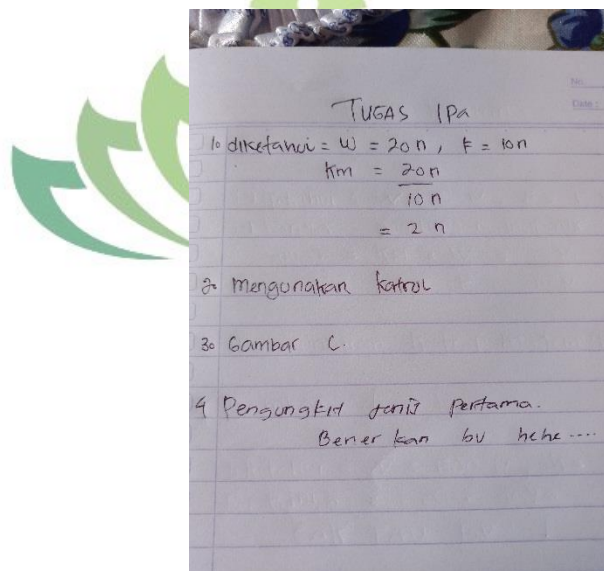 No.
Date:
TUGAS IPa
1. diketahui = W = 20 n, F = 10n
Km = 20n
10 n
= 2 n
2. mengunakan katrol
3. Gambar C.
4 Pengungkit jenis Pertama.
Bener kan bu hehe....